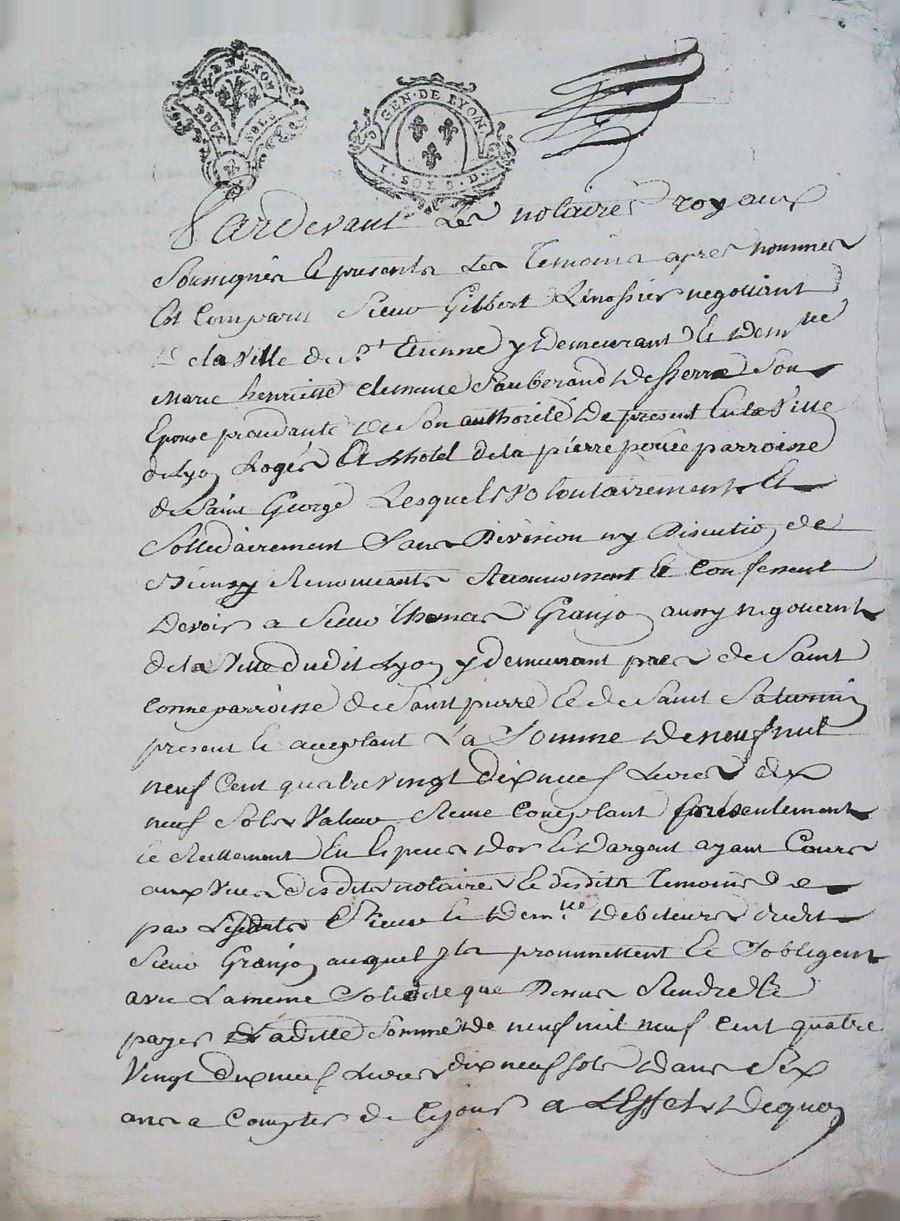 GEN. DE LYON
DEUX SOLS
GEN. DE LYON
1. SOL 8. D.
Pardevant Les notaires royaux
Soussignés Et presents Les Temoins apres nommés
Est Comparu Sieur Gilbert Linossier negotiant
De la Ville de St. Etienne y Demeurant Et Demlle
Marie henriette Clemence Son
Epouse procedante De Son authorité De present En la Ville
de Lyon Logés A Lhotel de la pierre percée parroisse
de Saint George Lesquels Volontairement Et
Sollidairement Sans Division ny Discution de
Biens y Renonceants Reconnoissent Et Confessent
Devoir a Sieur Thomas Granjon aussy negotient
de la Ville dudit Lyon y demeurant pres de Saint
Come parroisse de Saint pierre Et de Saint Saturnin
present Et acceptant La Somme De neuf mil
neuf Cent quatre Vingt dix neuf Livres dix
neuf Sols Valeur Reçue Comptant présentement
Et Reellement En Especes D'or Et D'argent ayant Cours
aux Vues desdits notaires Et desdits Temoins
par Lesdits Sieur Et Demlle Debiteurs dudit
Sieur Granjon auquel Ils promettent Et Sobligent
avec La meme Solidité que Dessus Rendre Et
payer Ladite Somme De neuf mil neuf Cent quatre
Vingt dix neuf Livres dix neuf sols Dans Six
ans a Compter de Ce jour a LEffet De quoy